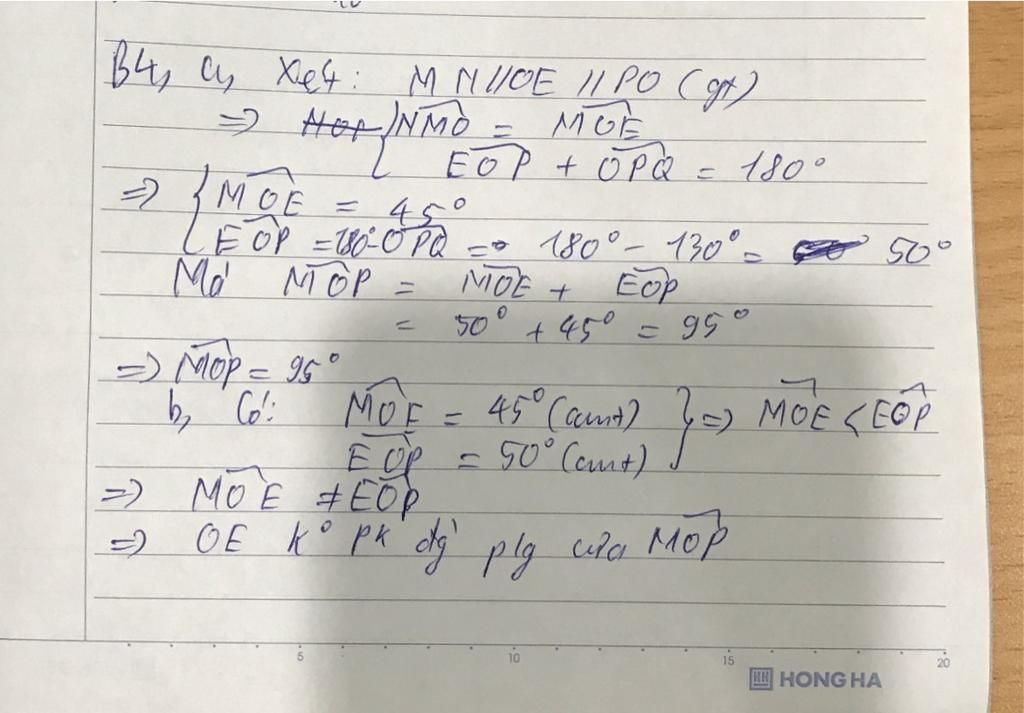 B4, a, Xét: MN//OE //PQ (gt)
=> { NMO = MOE
EOP + OPQ = 180°
=> { MOE = 45°
EOP = 180°-OPQ = 180° - 130° = 50°
Mà MOP = MOE + EOP
= 50° + 45° = 95°
=> MOP = 95°
b, Có: MOE = 45° (cmt) } => MOE < EOP
EOP = 50° (cmt)
=> MOE ≠ EOP
=> OE k° pk đg plg của MOP
5 10 15 20
HONG HA